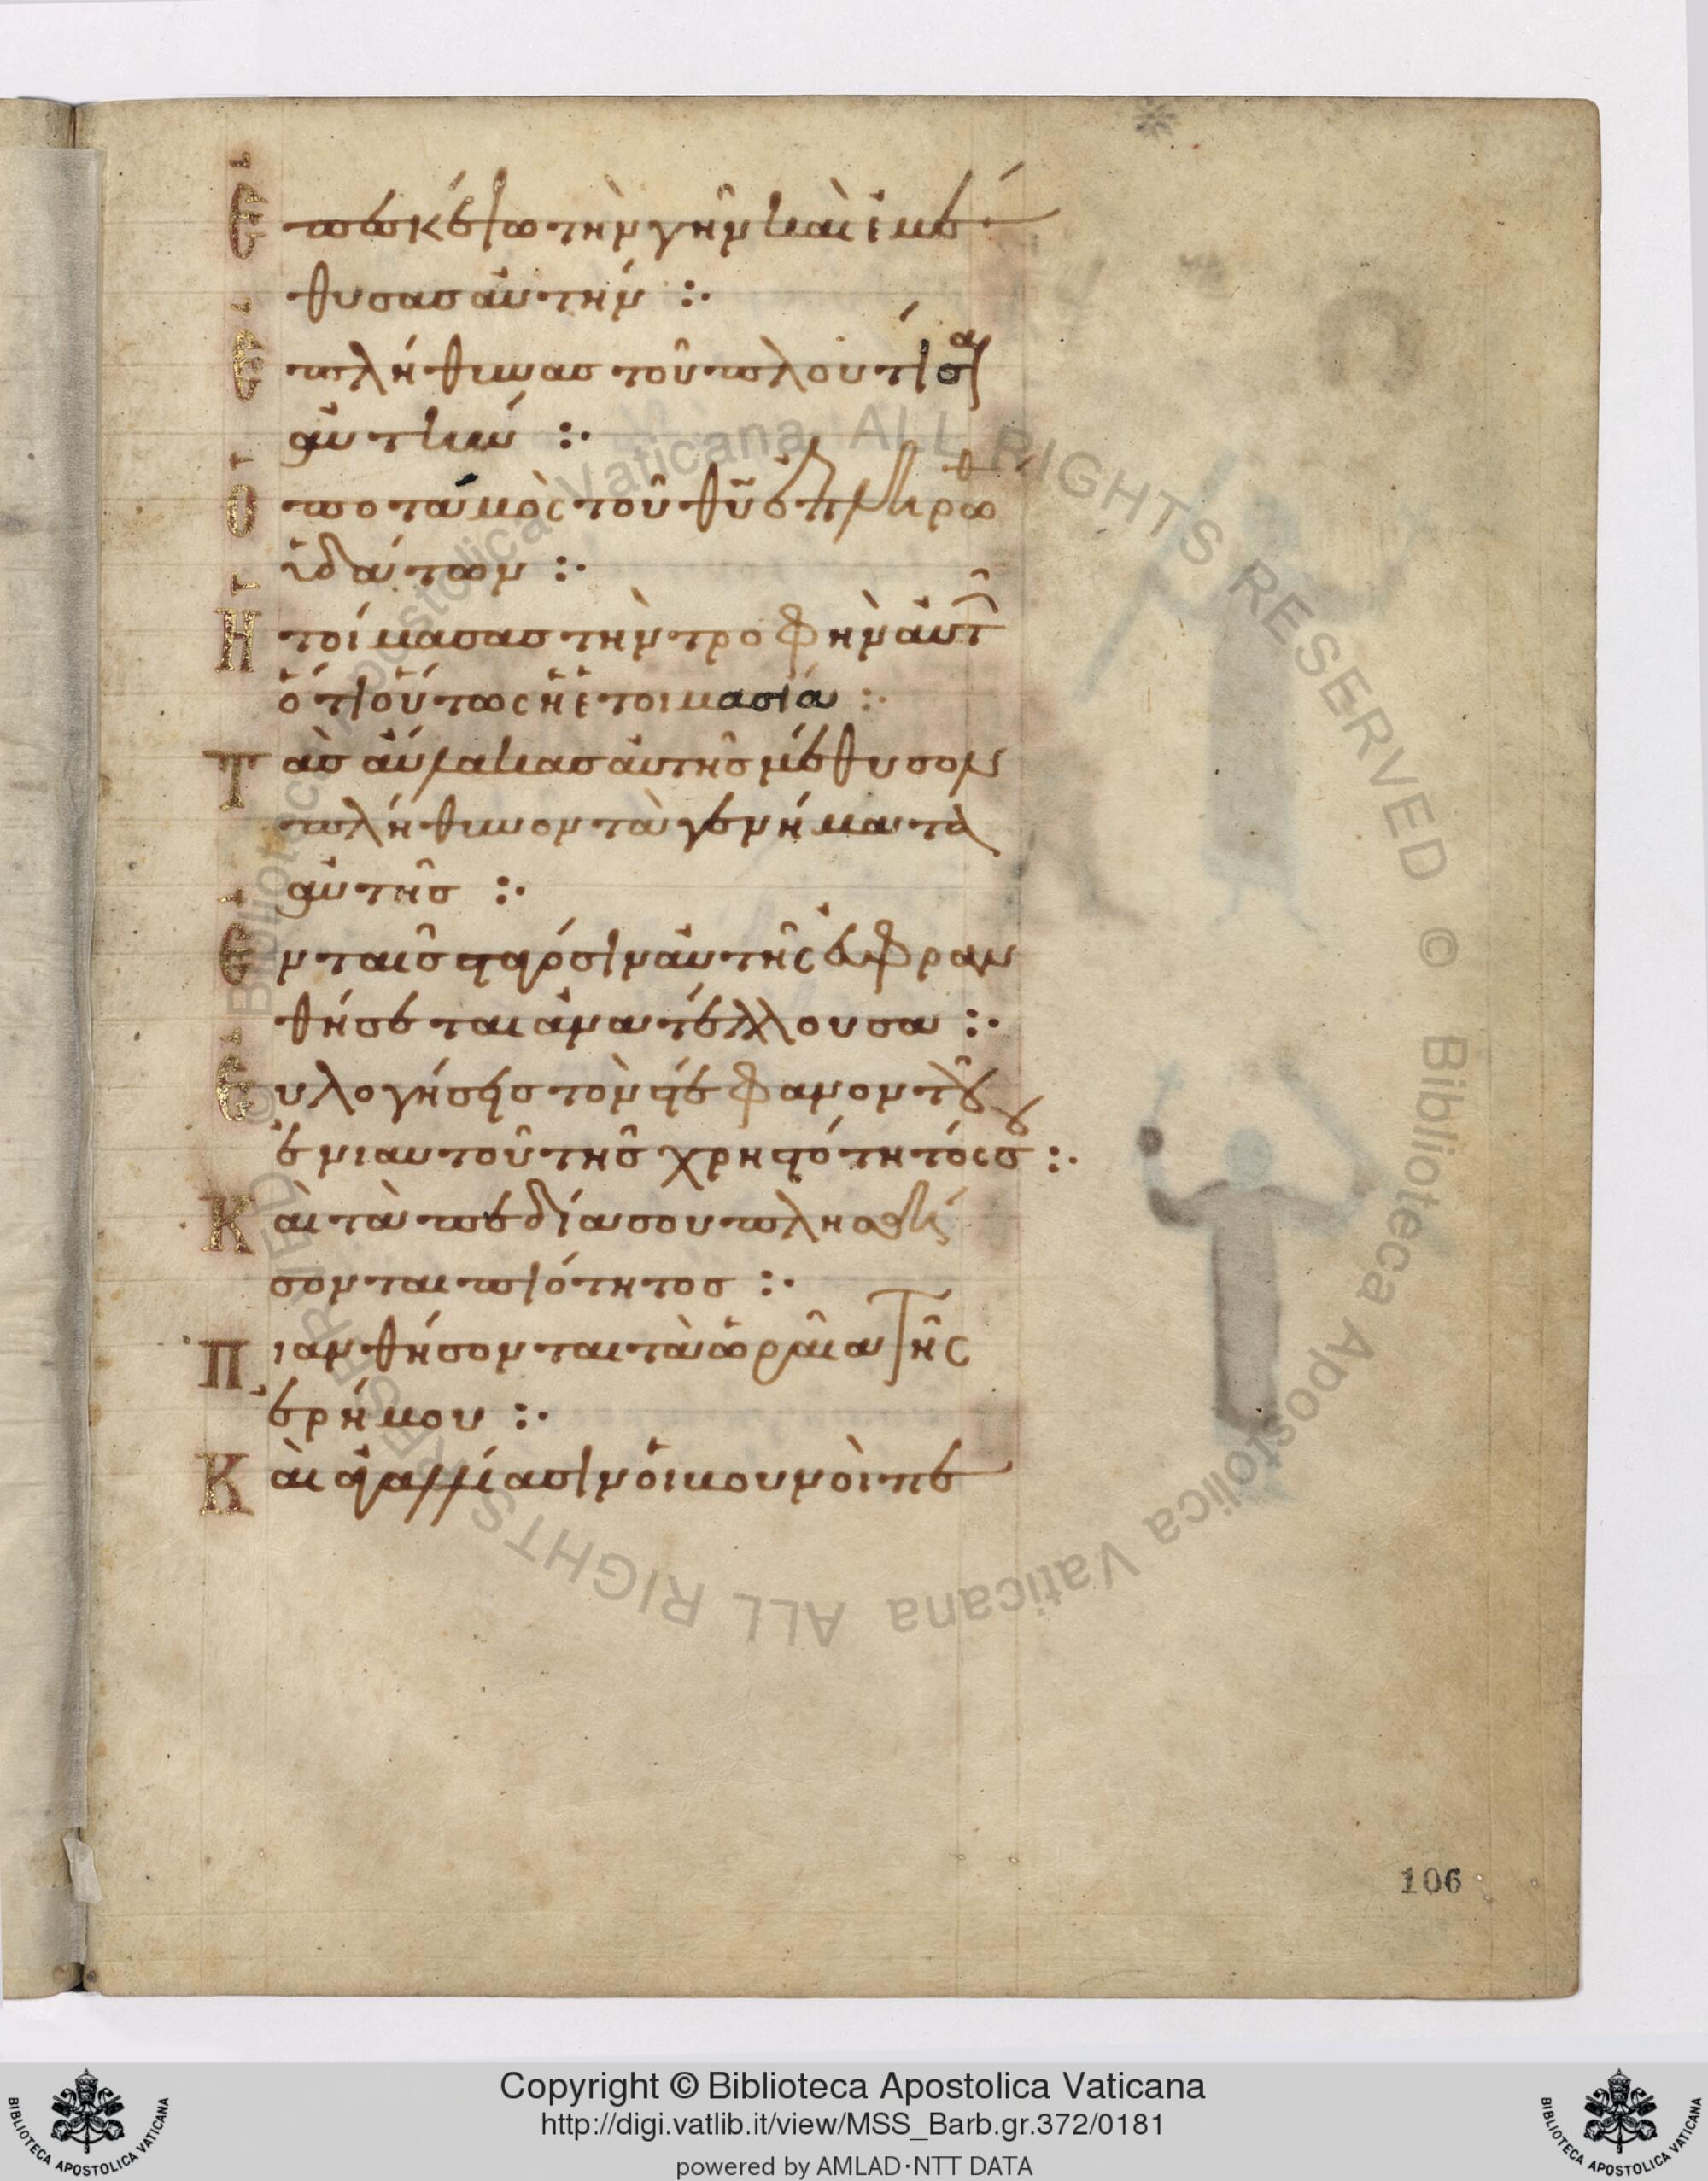 Ἐπεσκέψω τὴν γῆν καὶ ἐμέ
θυσας αὐτήν :·
Ἐπλήθυνας τοῦ πλουτίσαι
αὐτήν :·
Ὁ ποταμὸς τοῦ θυ ἐπληρώθ
ὑδάτων :·
Ἡτοίμασας τὴν τροφὴν αὐτῶ
ὅτι οὕτως ἡ ἑτοιμασία :·
Τὰς αὔλακας αὐτῆς μέθυσον
πλήθυνον τὰ γενήματα
αὐτῆς :·
Ἐν ταῖς σταγόσιν αὐτῆς εὐφραν
θήσεται ἀνατέλλουσα :·
Εὐλογήσεις τὸν στέφανον τοῦ
ἐνιαυτοῦ τῆς χρηστότητός σου :·
Καὶ τὰ πεδία σου πλησθή
σονται πιότητος :·
Πιανθήσονται τὰ ὡραῖα τῆς
ἐρήμου :·
Καὶ ἀγαλλίασιν οἱ βουνοὶ πε
106
© Biblioteca Apostolica Vaticana ALL RIGHTS RESERVED © Biblioteca Apostolica Vaticana ALL RIGHTS RESERVED
Copyright © Biblioteca Apostolica Vaticana
http://digi.vatlib.it/view/MSS_Barb.gr.372/0181
powered by AMLAD·NTT DATA
BIBLIOTECA APOSTOLICA VATICANA
BIBLIOTECA APOSTOLICA VATICANA